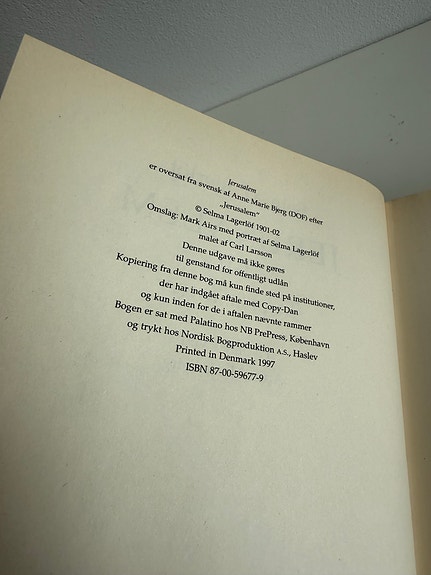 Jerusalem
er oversat fra svensk af Anne Marie Bjerg (DOF) efter
„Jerusalem”
© Selma Lagerlöf 1901-02
Omslag: Mark Airs med portræt af Selma Lagerlöf
malet af Carl Larsson
Denne udgave må ikke gøres
til genstand for offentligt udlån
Kopiering fra denne bog må kun finde sted på institutioner,
der har indgået aftale med Copy-Dan
og kun inden for de i aftalen nævnte rammer
Bogen er sat med Palatino hos NB PrePress, København
og trykt hos Nordisk Bogproduktion A.S., Haslev
Printed in Denmark 1997
ISBN 87-00-59677-9